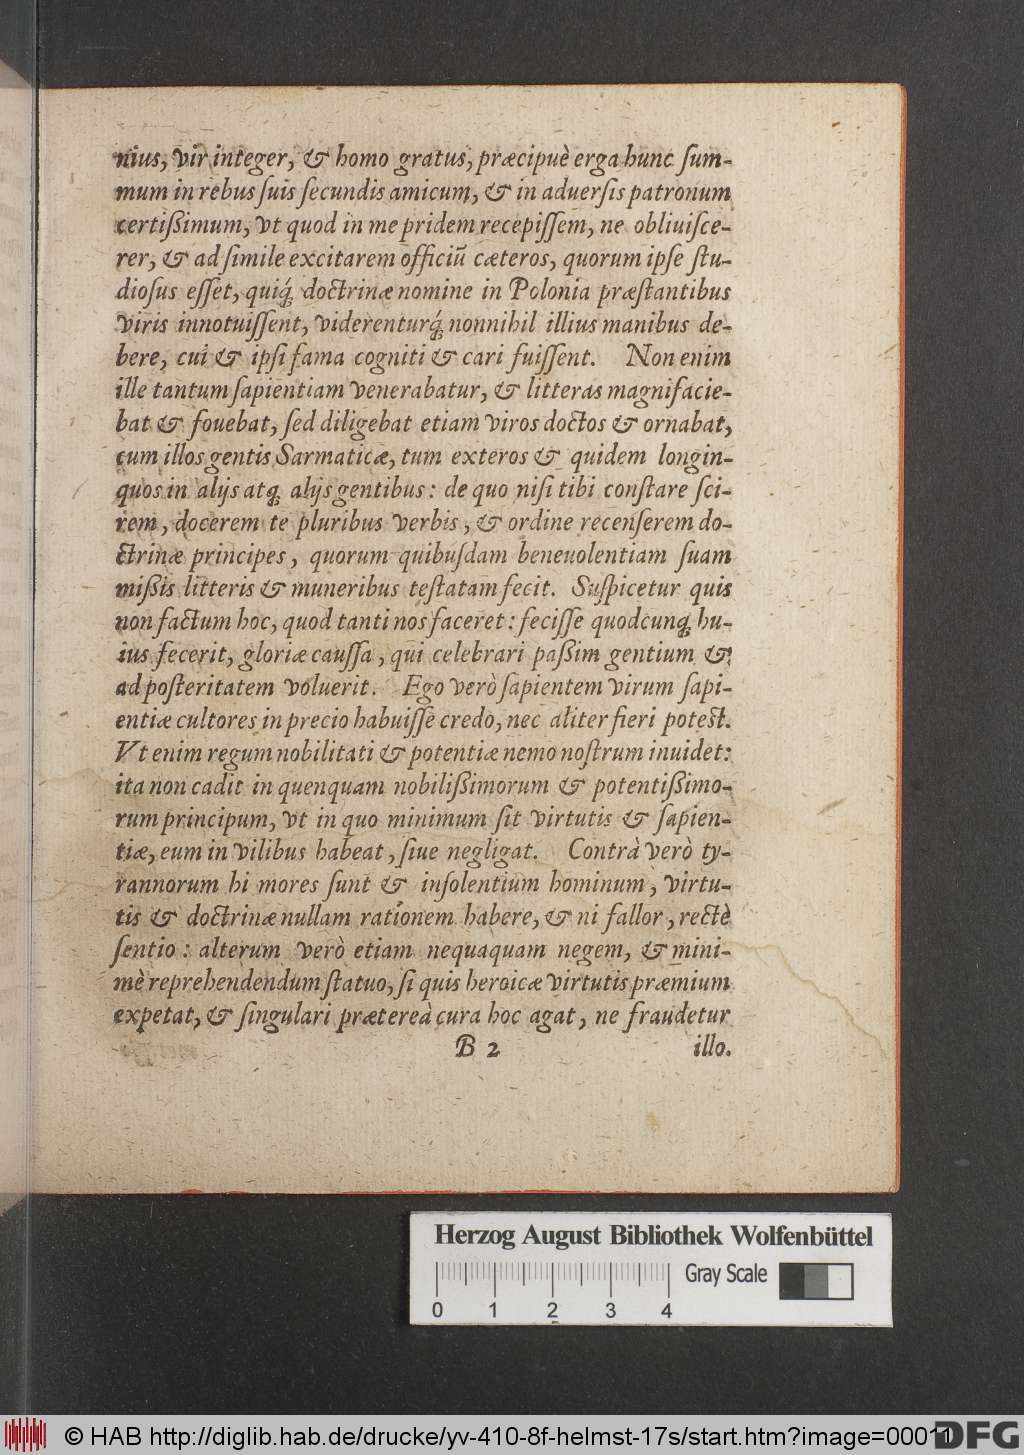 nius, vir integer, & homo gratus, præcipuè erga hunc ſum-
mum in rebus ſuis ſecundis amicum, & in aduerſis patronum
certiſſimum, vt quod in me pridem recepiſſem, ne obliuiſce-
rer, & ad ſimile excitarem officiũ cæteros, quorum ipſe ſtu-
dioſus eſſet, quiq́ꝫ doctrinæ nomine in Polonia præſtantibus
viris innotuiſſent, viderenturq́ꝫ nonnihil illius manibus de-
bere, cui & ipſi fama cogniti & cari fuiſſent. Non enim
ille tantum ſapientiam venerabatur, & litteras magnifacie-
bat & fouebat, ſed diligebat etiam viros doctos & ornabat,
cum illos gentis Sarmaticæ, tum exteros & quidem longin-
quos in alijs atqꝫ alijs gentibus: de quo niſi tibi conſtare ſci-
rem, docerem te pluribus verbis, & ordine recenſerem do-
ctrinæ principes, quorum quibuſdam beneuolentiam ſuam
miſſis litteris & muneribus teſtatam fecit. Suſpicetur quis
non factum hoc, quod tanti nos faceret: feciſſe quodcunqꝫ hu-
ius fecerit, gloriæ cauſſa, qui celebrari paſſim gentium &
ad poſteritatem voluerit. Ego verò ſapientem virum ſapi-
entiæ cultores in precio habuiſſe credo, nec aliter fieri poteſt.
Vt enim regum nobilitati & potentiæ nemo noſtrum inuidet:
ita non cadit in quenquam nobiliſſimorum & potentiſſimo-
rum principum, vt in quo minimum ſit virtutis & ſapien-
tiæ, eum in vilibus habeat, ſiue negligat. Contrà verò ty-
rannorum hi mores ſunt & inſolentium hominum, virtu-
tis & doctrinæ nullam rationem habere, & ni fallor, rectè
ſentio: alterum verò etiam nequaquam negem, & mini-
mè reprehendendum ſtatuo, ſi quis heroicæ virtutis præmium
expetat, & ſingulari prætereà cura hoc agat, ne fraudetur
B 2 illo.
Herzog August Bibliothek Wolfenbüttel
Gray Scale
0 1 2 3 4
© HAB http://diglib.hab.de/drucke/yv-410-8f-helmst-17s/start.htm?image=00011
DFG